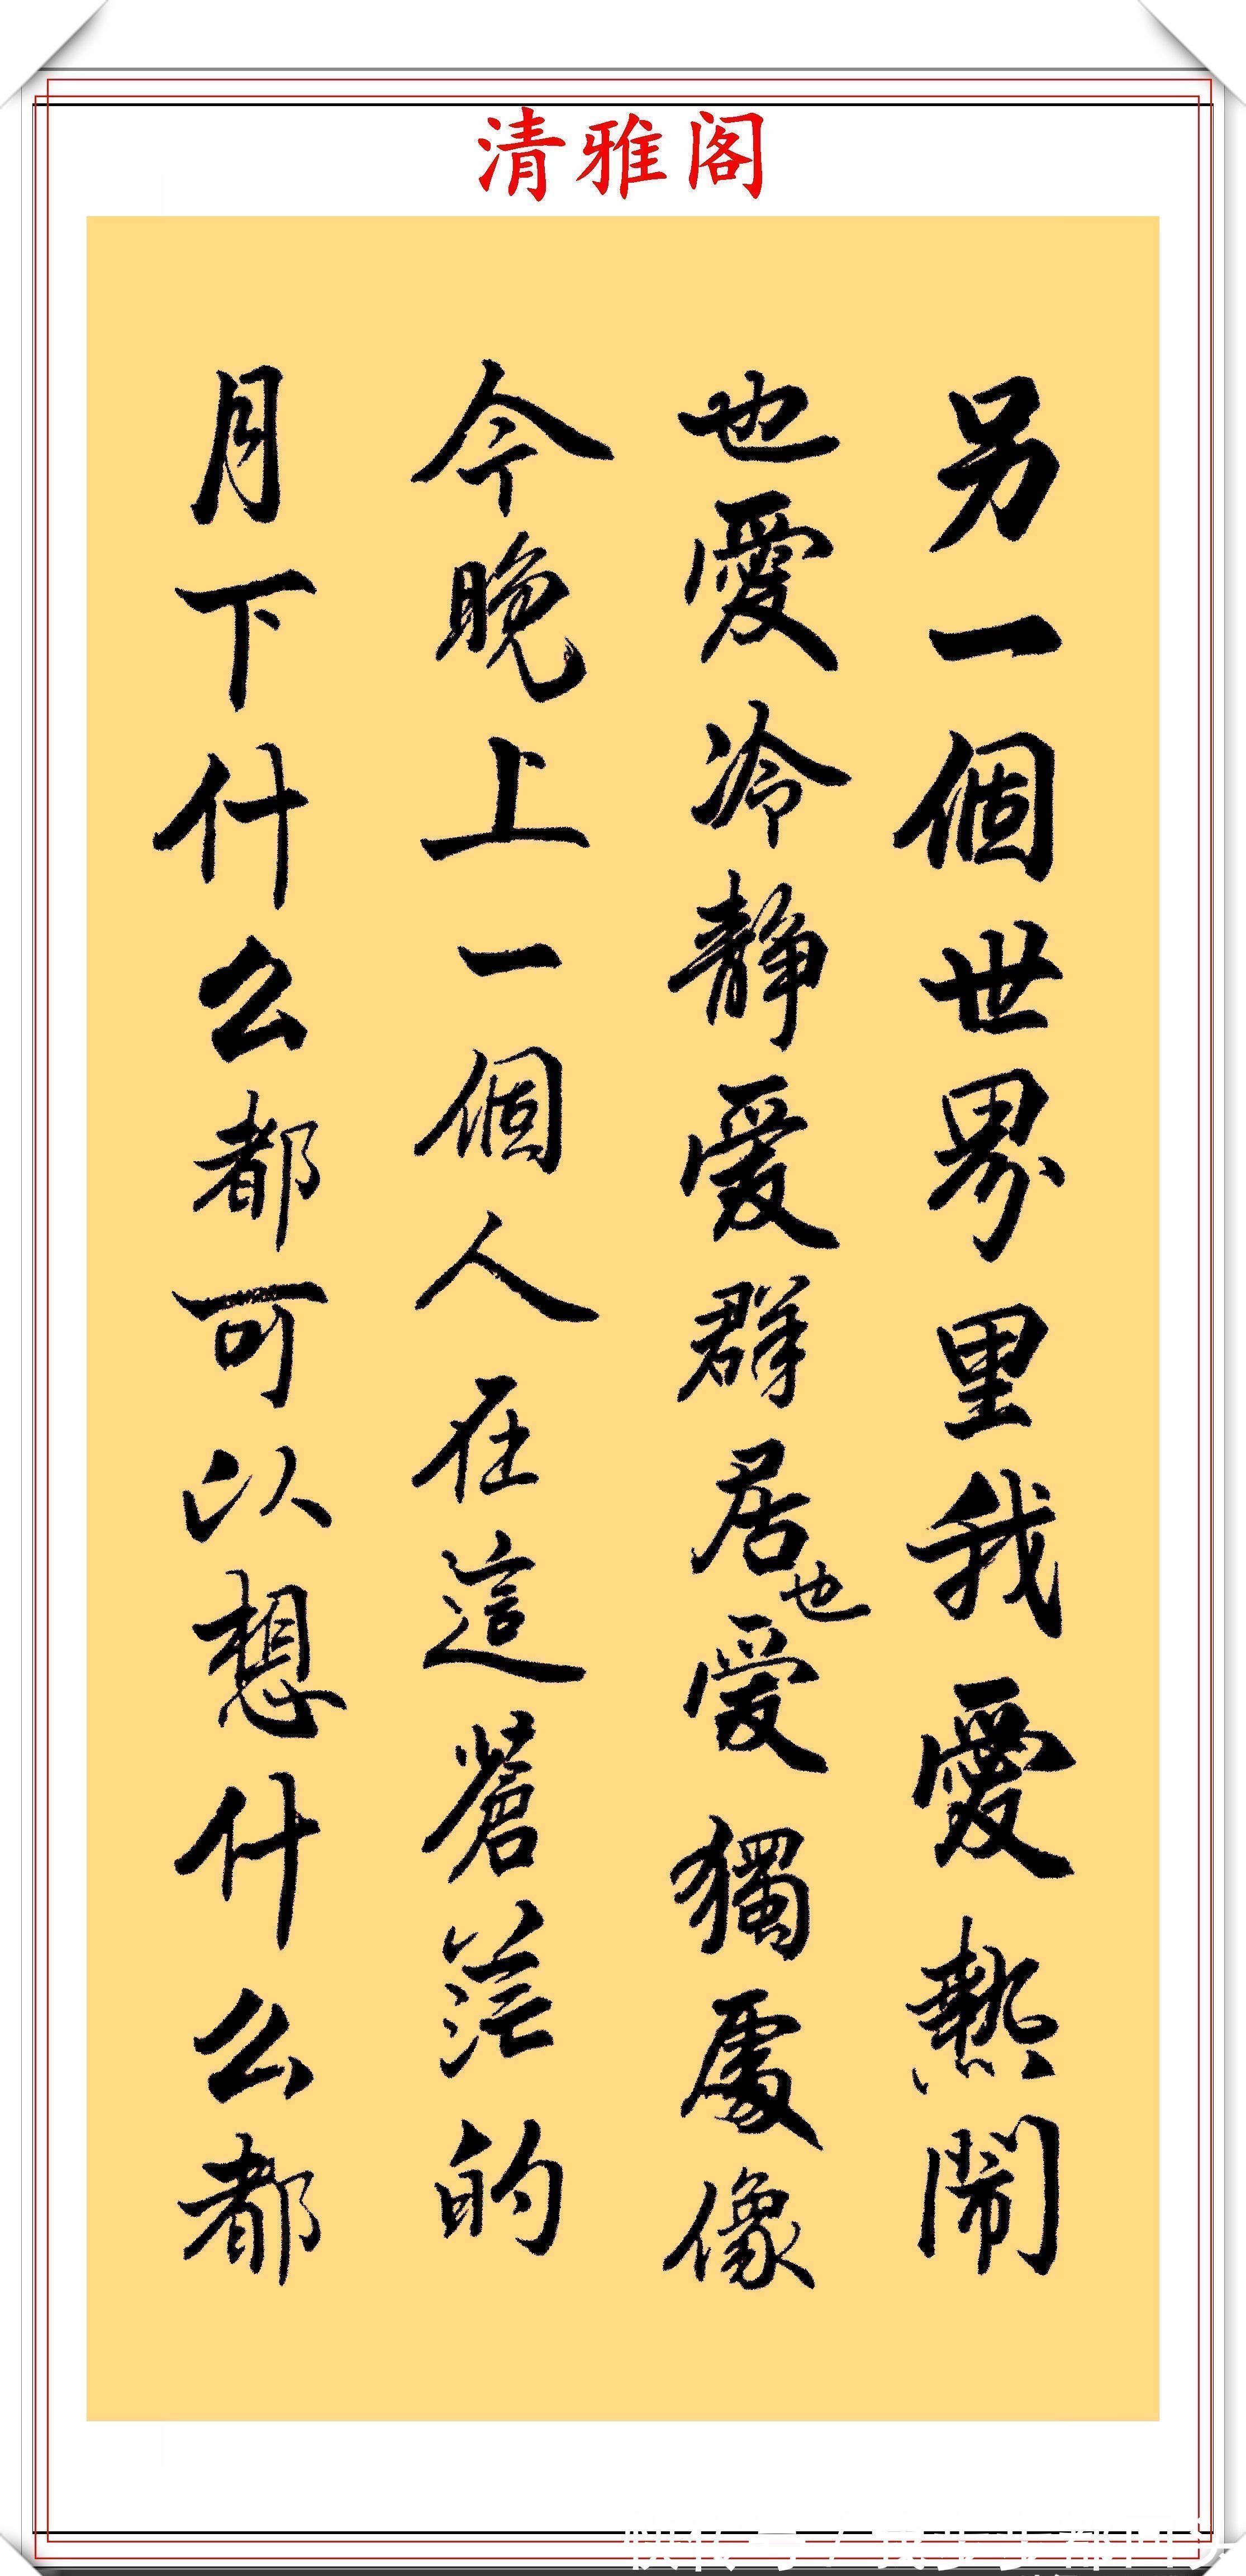 清雅阁
另一個世界里我愛熱鬧
也愛冷静爱群居也爱獨處像
今晚上一個人在這蒼茫的
月下什么都可以想什么都